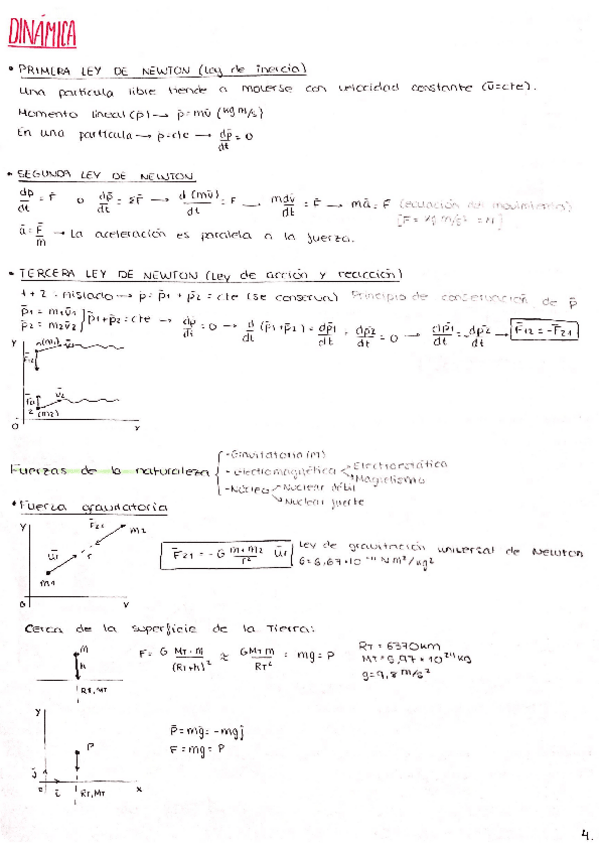 DINÁMICA
• PRIMERA LEY DE NEWTON (Ley de inercia)
Una partícula libre tiende a moverse con velocidad constante (v̄=cte).
Momento lineal (p̄) → p̄=mv̄ (kg m/s)
En una partícula → p̄=cte → dp̄/dt = 0
• SEGUNDA LEY DE NEWTON
dp̄/dt = F̄ o dp̄/dt = ΣF̄ → d(mv̄)/dt = F → mdv̄/dt = F̄ → mā = F̄ (ecuación del movimiento)
[F = kg m/s² = N]
ā = F̄/m → La aceleración es paralela a la fuerza.
• TERCERA LEY DE NEWTON (Ley de acción y reacción)
1+2 · Aislado → p̄ = p̄1 + p̄2 = cte (se conserva) Principio de conservación de p̄
p̄1 = m1v̄1
p̄2 = m2v̄2 } p̄1+p̄2 = cte → dp̄/dt = 0 → d/dt (p̄1+p̄2) = dp̄1/dt + dp̄2/dt = 0 → dp̄1/dt = -dp̄2/dt → F̄12 = -F̄21
y (m1) v̄1
F̄12
F̄21 v̄2
2 (m2)
0 x
Fuerzas de la naturaleza
- Gravitatoria (m)
- Electromagnética < Electrostática
Magnetismo
- Núcleo < Nuclear débil
Nuclear fuerte
• Fuerza gravitatoria
y F̄21 m2
ūr r
m1
0 x
F̄21 = -G m1·m2/r² ūr Ley de gravitación universal de Newton
G = 6,67·10⁻¹¹ N m²/kg²
Cerca de la superficie de la Tierra:
m
h
RT, MT
F = G MT·m/(RT+h)² ≈ GMTm/RT² = mg = P
RT = 6370km
MT = 5,97 · 10²⁴ kg
g = 9,8 m/s²
y
P
j
0 i RT, MT x
P̄ = mḡ = -mgj̄
F = mg = P
4.